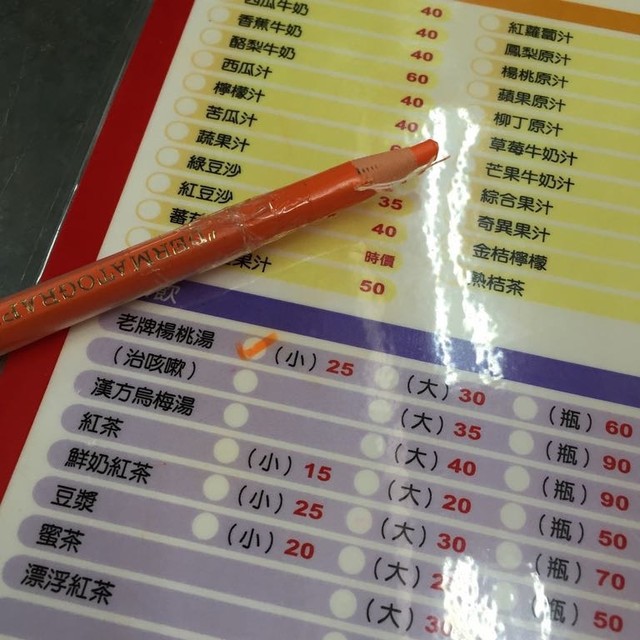 西瓜牛奶 40
香蕉牛奶 40
酪梨牛奶 40
西瓜汁 60
檸檬汁 40
苦瓜汁 40
蔬果汁
綠豆沙
紅豆沙 35
蕃 40
時價
果汁 50
紅蘿蔔汁
鳳梨原汁
楊桃原汁
蘋果原汁
柳丁原汁
草莓牛奶汁
芒果牛奶汁
綜合果汁
奇異果汁
金桔檸檬
熱桔茶
DERMATOGRAP
飲
老牌楊桃湯 (小) 25 (大) 30 (瓶) 60
(治咳嗽)
漢方烏梅湯 (大) 35 (瓶) 90
紅茶 (大) 40 (瓶) 90
鮮奶紅茶 (小) 15 (大) 20 (瓶) 50
豆漿 (小) 25 (大) 30 (瓶) 70
蜜茶 (小) 20 (大) (瓶) 50
漂浮紅茶 (大) 30